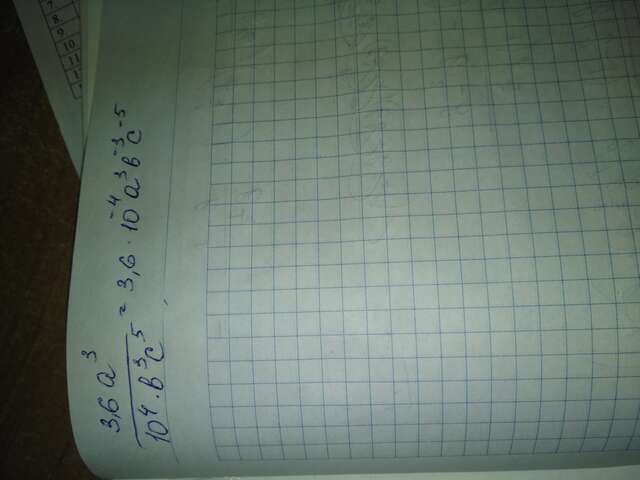 7
8
9
10
11
3,6a³/10⁴·b³c⁵ = 3,6·10⁻⁴a³b⁻³c⁻⁵